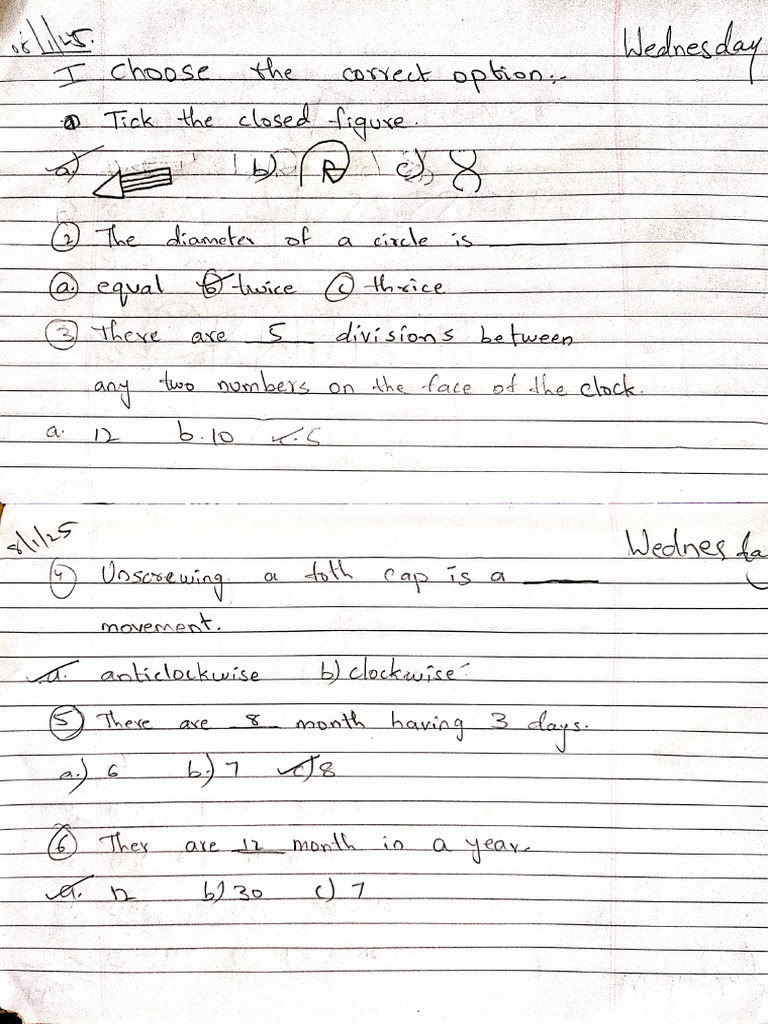 08/1/25. Wednesday
I Choose the correct option:-
① Tick the closed figure.
a) b) c)
② The diameter of a circle is ______
ⓐ equal ⓑ twice ⓒ thrice
③ There are 5 divisions between
any two numbers on the face of the clock.
a. 12 b. 10 c. 5
8/1/25 Wednesda
④ Unscrewing a toth cap is a ______
movement.
a. anticlockwise b) clockwise
⑤ There are 8 month having 3 days.
a.) 6 b.) 7 c) 8
⑥ Ther are 12 month in a year.
a. 12 b) 30 c) 7